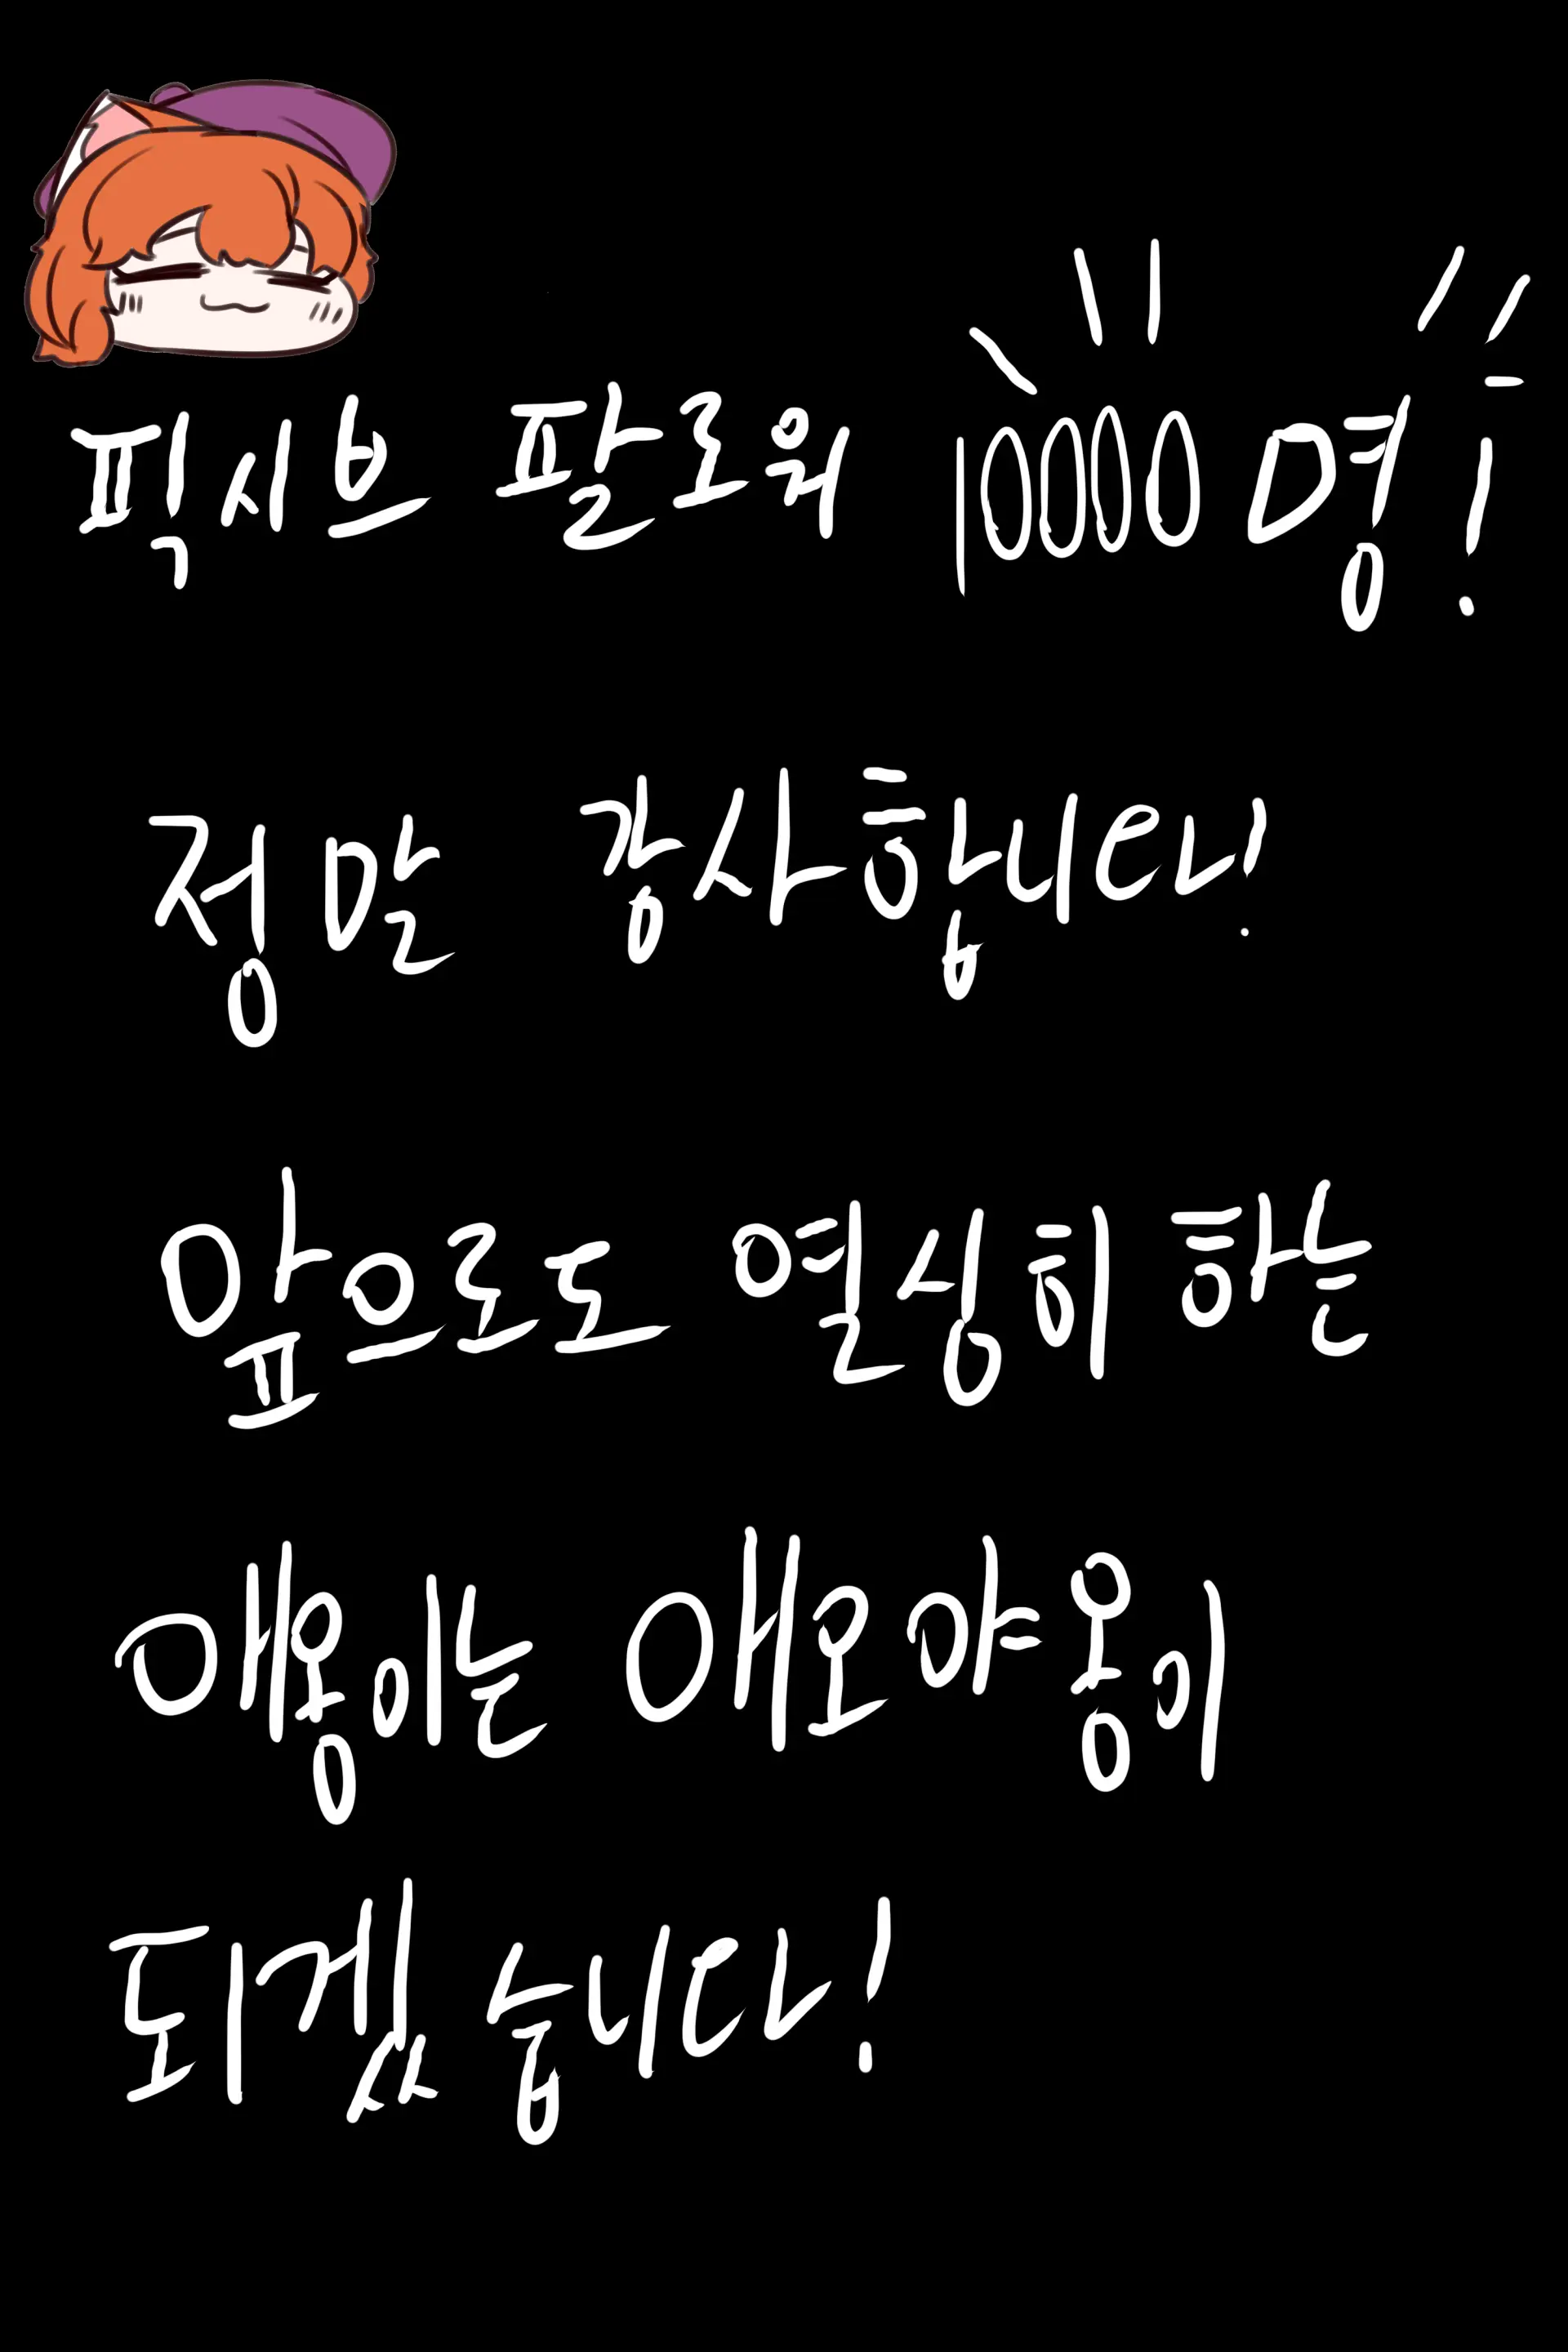 픽시브 팔로워 10000명!
정말 감사합니다!
앞으로도 열심히 하는
애옹이는 애오야옹이
되겠습니다!